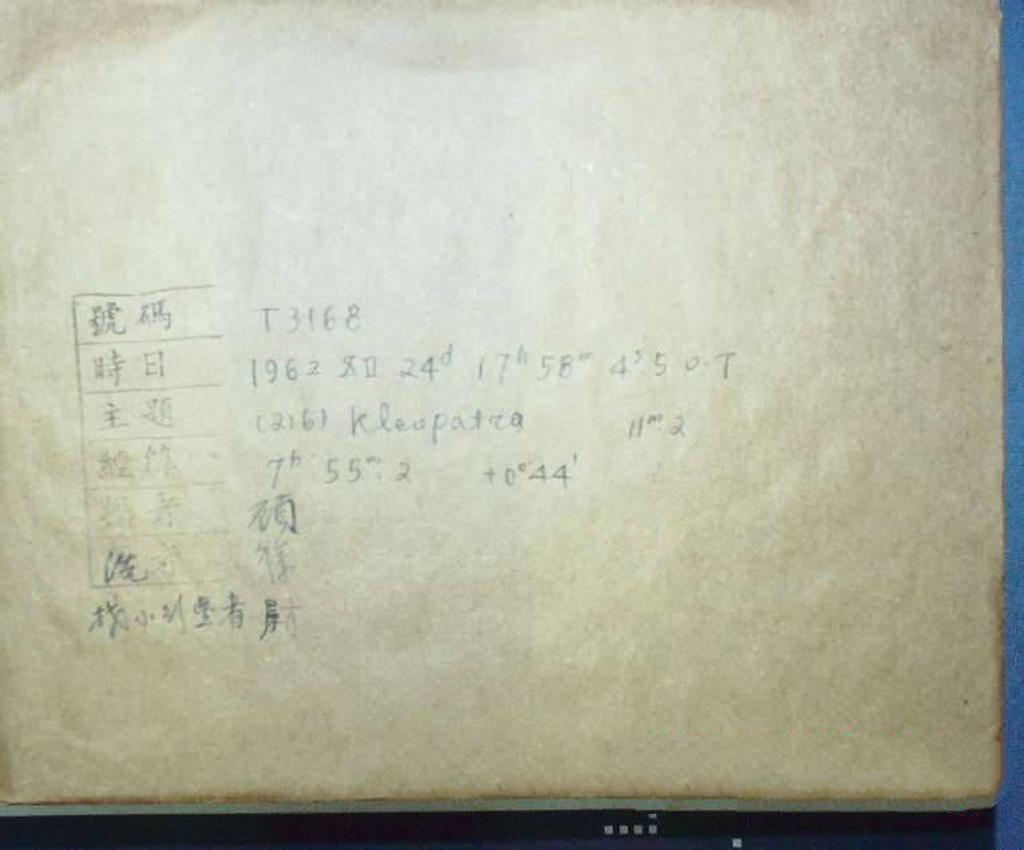 號碼 T3168
時日 1962 XII 24ᵈ 17ʰ 58ᵐ 4ˢ5 U.T
主題 (216) Kleopatra 11ᵐ.2
7ʰ 55ᵐ.2 +0°44'
顧
洗
找小行星者